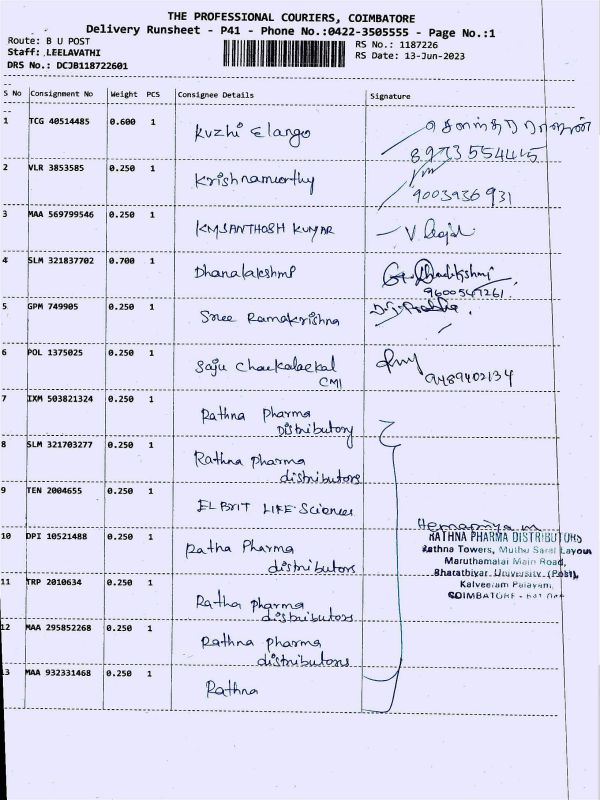 THE PROFESSIONAL COURIERS, COIMBATORE
Delivery Runsheet - P41 - Phone No.:0422-3505555 - Page No.:1
Route: B U POST
RS No.: 1187226
Staff: LEELAVATHI
RS Date: 13-Jun-2023
DRS No.: DCJB118722601
S No Consignment No Weight PCS Consignee Details Signature
1 TCG 40514485 0.600 1 Kuzhi Elango
8973554445
2 VLR 3853585 0.250 1 Krishnamoorthy
9003936931
3 MAA 569799546 0.250 1 KMSANTHOSH KUMAR
4 SLM 321837702 0.700 1 Dhanalakshmi
9600547261
5 GPM 749905 0.250 1 Sree Ramakrishna
6 POL 1375025 0.250 1 Saju
CMI
9489402134
7 IXM 503821324 0.250 1 Rathna Pharma
Distributory
8 SLM 321703277 0.250 1 Rathna pharma
distributors
9 TEN 2004655 0.250 1 ELBRIT LIFE Sciences
10 DPI 10521488 0.250 1 Ratha Pharma
distributors
11 TRP 2010634 0.250 1 Ratha pharma
distributors
12 MAA 295852268 0.250 1 Rathna pharma
distributors
13 MAA 932331468 0.250 1 Rathna
Hemapriya m
RATHNA PHARMA DISTRIBUTORS
Rathna Towers, Muthu Saral Layout
Maruthamalai Main Road,
Bharathiyar University (Post),
Kalveeram Palayam,
COIMBATORE -